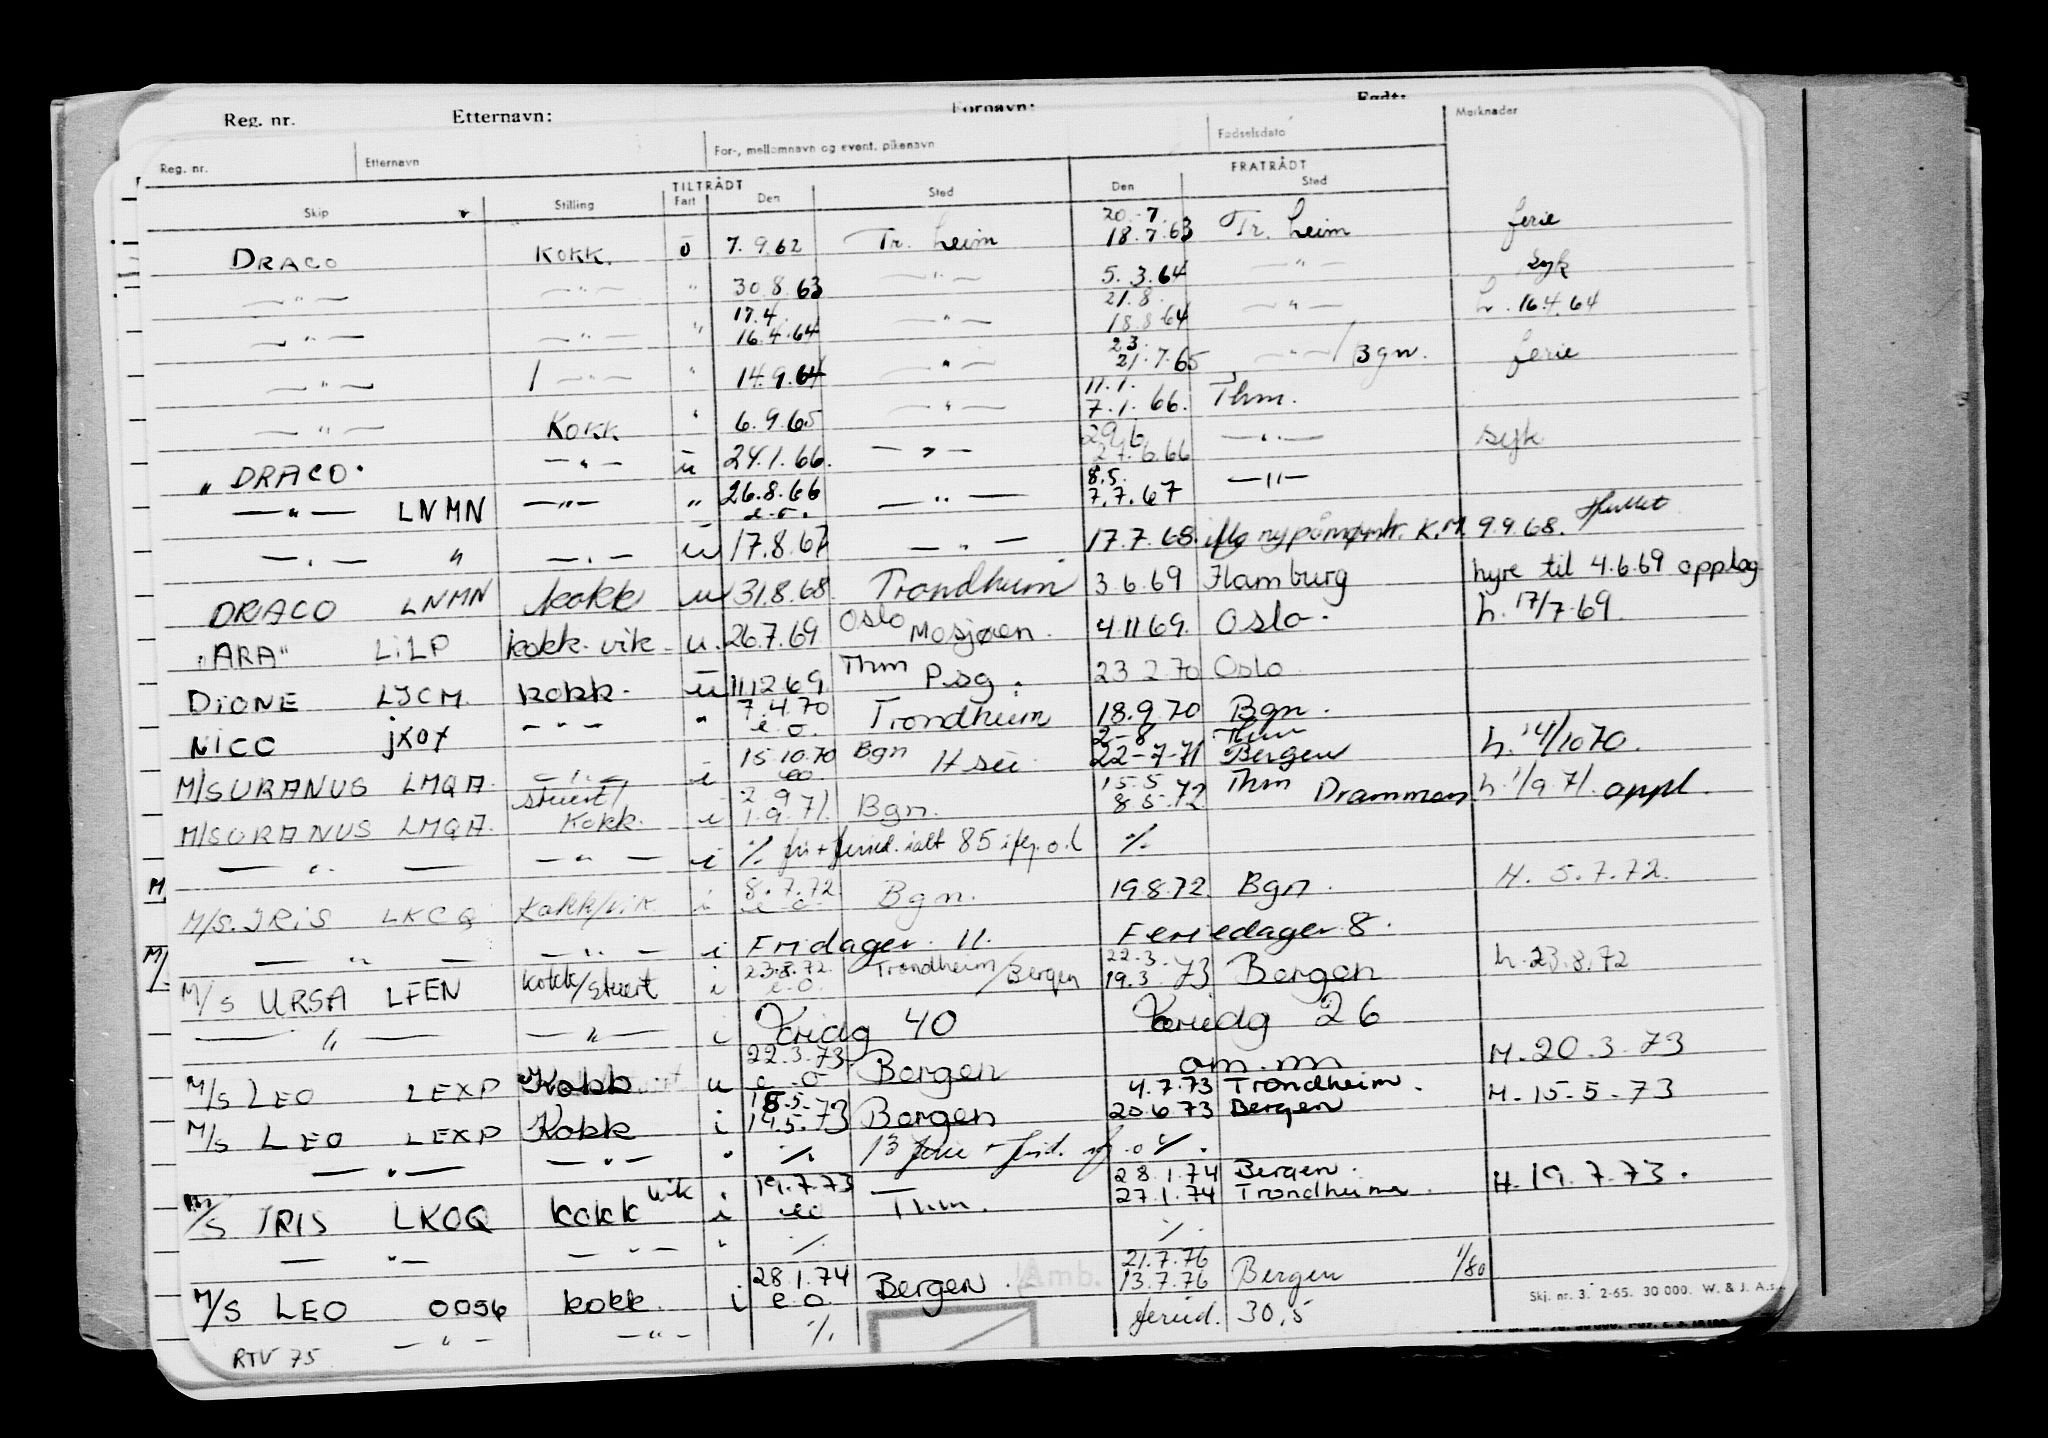 Reg. nr. Etternavn: Fornavn: Født:
Reg. nr. Etternavn For-, mellomnavn og event. pikenavn Fødselsdato Merknader
TILTRÅDT FRATRÅDT
Skip Stilling Fart Den Sted Den Sted
20.-7.
DRACO KOKK. ū 7.9.62 Tr.heim 18.7.63 Tr.heim ferie
—"— —"— " 30.8.63 —"— 5.3.64 —"— Syk
17.4. 21.8.
—"— —"— " 16.4.64 —"— 18.8.64 —"— h. 16.4.64
23.
—"— / —"— " 14.9.64 —"— 21.7.65 —"—/Bgn. ferie
11.1.
—"— Kokk " 6.9.65 —"— 7.1.66. Thm.
29.6
"DRACO" —"— ū 24.1.66. —"— 27.6.66 —"— syk
8.5.
—"— LNMN —"— " 26.8.66 —"— 7.7.67 —"—
e.o.
—"— " —"— u 17.8.67 —"— 17.7.68. iflg ny påmønstr. K.M. 9.9.68.
DRACO LNMN kokk u 31.8.68. Trondheim 3.6.69 Hamburg hyre til 4.6.69 opplag
"ARA" LiLP kokk-vik u. 26.7.69 Oslo Mosjøen. 4.11.69. Oslo. h. 17/7-69.
DiONE LJCM. kokk. u 11.12.69. Thm P.sg. 23.2.70 Oslo.
NiCO jXOY —"— " 7.4.70 Trondheim 18.9.70 Bgn.
e.o. 2-8 Thm
M/S URANUS LMQA. —"— i 15.10.70 Bgn 22-7-71 Bergen h. 14/10 70.
eo.
stuert/ 2.9 15.5 Thm
M/S URANUS LMQA. Kokk. i 1.9.71. Bgn. 8.5.72 Drammen h. 1/9.71. oppl.
—"— —"— i ./. fri + feried. ialt 85 iflg. o.l ./.
M.
M/S. IRiS LKCQ Kokk/vik i 8.7.72 Bgn. 19.8.72. Bgn. H. 5.7.72.
e.o.
—"— —"— i Fridager. 11. Feriedager 8.
M/. 22.3.
M/S URSA LFEN kokk/stuert i 23.8.72. Trondheim/Bergen 19.3.73 Bergen h. 23.8.72
e.o.
—"— —"— i Fridg 40 Feriedg 26
M/S LEO LEXP Kokk u 22.3.73. Bergen om.m M. 20.3.73
e.o. 4.7.73 Trondheim.
15.5.
M/S LEO LEXP Kokk i 14.5.73 Bergen 20.6.73 Bergen M. 15-5-73
—"— —"— " ./. 13
28.1.74 Bergen.
M/S IRIS LKOQ kokk vik i 19.7.73 Thm. 27.1.74 Trondheim. H. 19.7.73.
eo
—"— —"— " ./. ./.
21.7.76
M/S LEO 0056 kokk. i 28.1.74 Bergen. 13.7.76 Bergen 1/80
e.o. Amb.
—"— —"— ./. feried. 30,5
RTV 75
Skj. nr. 3. 2-65. 30 000. W. & J. A.s.